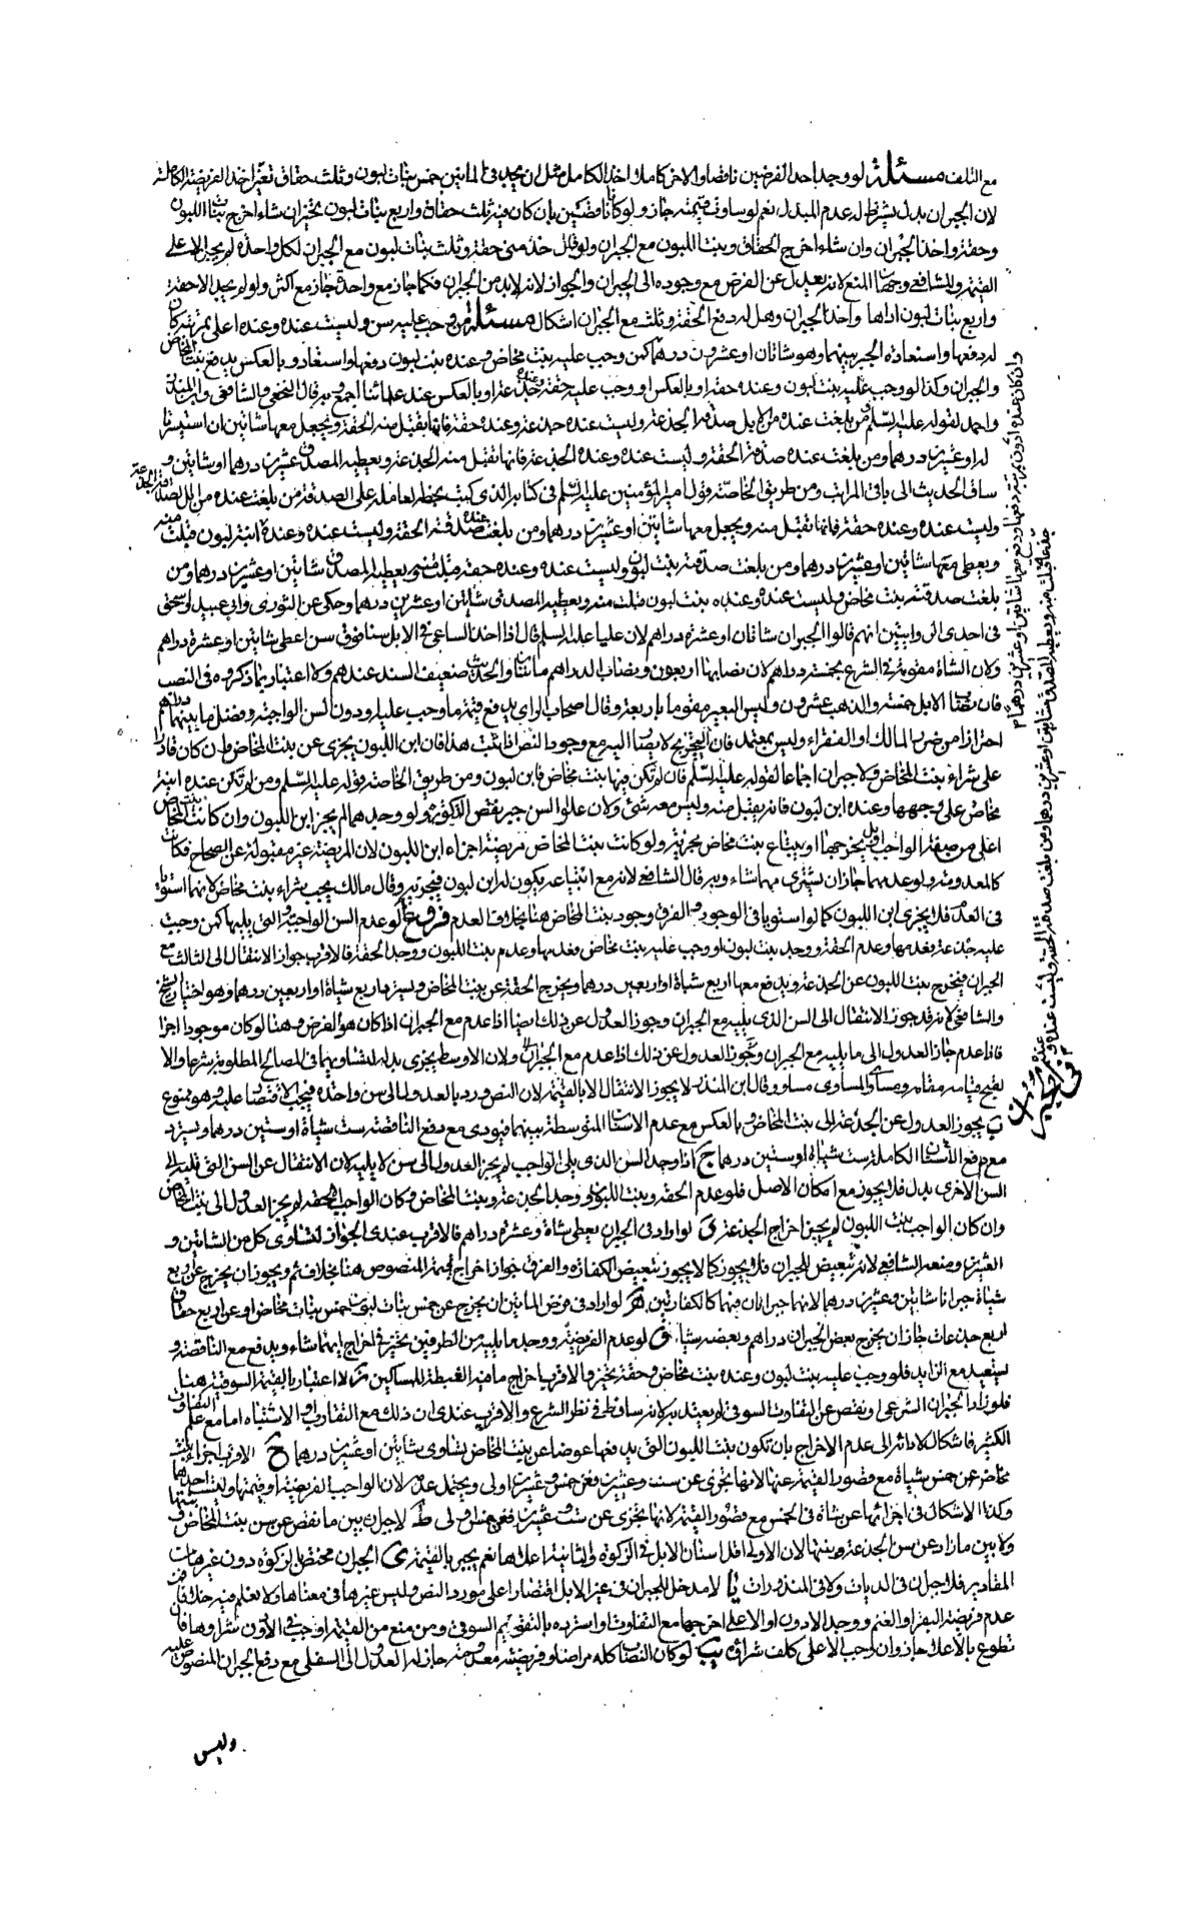 مع التلف مسئلة لو وجد احد الفرضين ناقصا والاخر كاملا اخذ الكامل مثل ان يجد في المائتين خمس بنات لبون وثلث حقاق تعين اخذ الفريضة الكاملة
لان الجبران بدل يشترط له عدم المبدل نعم لو ساوت قيمته جاز ولو كانا ناقصين بان كان فيه ثلث حقاق واربع بنات لبون تخير ان شاء اخرج بنات اللبون
وحقة واخذ الجبران وان شاء اخرج الحقاق وبنت اللبون مع الجبران ولو قال خذ مني حقة وثلث بنات لبون مع الجبران لكل واحدة لم يجبر الا على
القيمة وللشافعي وجهان المنع لانه يعدل عن الفرض مع وجوده الى الجبران والجواز لانه لا بد من الجبران فكما جاز مع واحدة جاز مع اكثر ولو لم يجد الا حقة
واربع بنات لبون اداها واخذ الجبران وهل له دفع الحقة وثلث مع الجبران اشكال مسئلة من وجب عليه سن وليست عنده وعنده اعلى بمرتبة كان
له دفعها واستعادة الجبر بينهما وهو شاتان او عشرون درهما كمن وجب عليه بنت مخاض وعنده بنت لبون دفعها واستعاد وبالعكس يدفع بنت المخاض
والجبران وكذا لو وجب عليه بنت لبون وعنده حقة او بالعكس او وجب عليه حقة وعنده جذعة او بالعكس عند علمائنا اجمع وبه قال النخعي والشافعي وابن المنذر
واحمد لقوله عليه السلم من بلغت عنده من الابل صدقة الجذعة وليست عنده جذعة وعنده حقة فانها تقبل منه الحقة ويجعل معها شاتين ان استيسرتا
له او عشرين درهما ومن بلغت عنده صدقة الحقة وليست عنده وعنده الجذعة فانها تقبل منه الجذعة ويعطيه المصدق عشرين درهما او شاتين و
ساق الحديث الى باقي المراتب ومن طريق الخاصة قول امير المؤمنين عليه السلم في كتابه الذي كتبه بخطه لعامله على الصدقة من بلغت عنده من الابل صدقة الجذعة
وليست عنده وعنده حقة فانها تقبل منه ويجعل معها شاتين او عشرين درهما ومن بلغت عنده صدقة الحقة وليست عنده وعنده ابنة لبون قبلت منه
ويعطي معها شاتين او عشرين درهما ومن بلغت صدقته بنت لبون وليست عنده وعنده حقة قبلت منه ويعطيه المصدق شاتين او عشرين درهما ومن
بلغت صدقته بنت مخاض وليست عنده وعنده بنت لبون قبلت منه ويعطيه المصدق شاتين او عشرين درهما وحكي عن الثوري وابي عبيد واسحق
في احدى الروايتين انهم قالوا الجبران شاتان او عشرة دراهم لان عليا عليه السلم قال اذا اخذ الساعي في الابل سنا فوق سن اعطى شاتين او عشرة دراهم
ولان الشاة مقومة في الشرع بخمسة دراهم لان نصابها اربعون ونصاب الدراهم مائتان والحديث ضعيف السند عندهم ولا اعتبار بما ذكروه في النصب
فان نصاب الابل خمسة والذهب عشرون وليس البعير مقوما باربعة وقال اصحاب الراي يدفع قيمة ما وجب عليه او دون السن الواجبة وفضل ما بينهما دراهم
احترازا من ضرر المالك او الفقراء وليس بمعتمد فان التخريج لا يصار اليه مع وجود النص اذا ثبت هذا فان ابن اللبون يجزي عن بنت المخاض وان كان قادرا
على شراء بنت المخاض ولا جبران اجماعا لقوله عليه السلم فان لم تكن فيها بنت مخاض فابن لبون ومن طريق الخاصة قوله عليه السلم ومن لم تكن عنده ابنة
مخاض على وجهها وعنده ابن لبون فانه يقبل منه وليس معه شئ ولان علو السن جبر نقص الذكورة ولو وجدهما لم يجز ابن اللبون وان كانت بنت المخاض
اعلى من صفة الواجب قيل يخرجها او يبتاع بنت مخاض مجزية ولو كانت بنت المخاض مريضة اجزاه ابن اللبون لان المريضة غير مقبولة عن الصحاح فكانت
كالمعدومة ولو عدمهما جاز ان يشتري مهما شاء وبه قال الشافعي لانه مع ابتياعه يكون له ابن لبون فيجزيه وقال مالك يجب شراء بنت مخاض لانهما استويا
في العدم فلا يجزي ابن اللبون كما لو استويا في الوجود والفرق وجود بنت المخاض هنا بخلاف العدم فروع ا لو عدم السن الواجبة والتي يليها كمن وجبت
عليه جذعة فعدمها وعدم الحقة ووجد بنت لبون او وجب عليه بنت مخاض فعدمها وعدم بنت اللبون ووجد الحقة فالاقرب جواز الانتقال الى الثالث مع
الجبران فيخرج بنت اللبون عن الجذعة ويدفع معها اربع شياة او اربعين درهما ويخرج الحقة عن بنت المخاض ويسترد اربع شياة او اربعين درهما وهو اختيار الشيخ
والشافعي لانه قد جوز الانتقال الى السن الذي يليه مع الجبران وجوز العدول عن ذلك ايضا اذا عدم مع الجبران اذا كان هو الفرض وهنا لو كان موجودا اجزا
فاذا عدم جاز العدول الى ما يليه مع الجبران وتجوز العدول عن ذلك اذا عدم مع الجبران ولان الاوسط يجزي بدله لتساويهما في المصالح المطلوبة شرعا والا
لقبح قيامه مقامه ومساوي المساوي مساو وقال ابن المنذر لا يجوز الانتقال الا بالقيمة لان النص ورد بالعدول الى سن واحدة فيجب الاقتصار عليه وهو ممنوع
ب يجوز العدول عن الجذعة الى بنت المخاض وبالعكس مع عدم الاسنان المتوسطة بينهما فيؤدي مع دفع الناقصة ست شياة او ستين درهما ويسترد
مع دفع الاسنان الكاملة ست شياة او ستين درهما ج اذا وجد السن الذي يلي الواجب لم يجز العدول الى سن لا يليه لان الانتقال عن السن التي تليه الى
السن الاخرى بدل فلا يجوز مع امكان الاصل فلو عدم الحقة وبنت اللبون ووجد الجذعة وبنت المخاض وكان الواجب الحقة لم يجز العدول الى بنت المخاض
وان كان الواجب بنت اللبون لم يجز اخراج الجذعة د لو اراد في الجبران يعطي شاة وعشرة دراهم فالاقرب عندي الجواز لتساوي كل من الشاتين و
العشرة ومنعه الشافعي لانه تبعيض للجبران فلا يجوز كما لا يجوز تبعيض الكفارة والفرق جواز اخراج قيمة المنصوص هنا بخلاف ثم ويجوز ان يخرج عن اربع
شياة جبرانا شاتين وعشرين درهما لانهما جبرانان فهما كالكفارتين ه لو اراد في فرض المائتين ان يخرج عن خمس بنات لبون خمس بنات مخاض او عن اربع حقاق
اربع جذعات جاز ان يخرج بعض الجبران دراهم وبعضه شياة و لو عدم الفريضة ووجد ما يليه من الطرفين تخير في اخراج ايهما شاء ويدفع مع الناقصة و
يستعيد مع الزايد فلو وجب عليه بنت لبون وعنده بنت مخاض وحقة تخير والاقرب اخراج ما فيه الغبطة للمساكين ز لا اعتبار بالقيمة السوقية هنا
فلو زاد الجبران الشرعي او نقص عن التفاوت السوقي لم يعتد به لانه ساقط في نظر الشرع والاقرب عندي ان ذلك مع التقارب او الاشتباه اما مع علم التفاوت
الكثير فاشكال لادائه الى عدم الاخراج بان تكون بنت اللبون التي يدفعها عوضا عن بنت المخاض يساوي شاتين او عشرين درهما ح الاقرب اجزاء بنت
مخاض عن خمس شياة مع قصور القيمة عنها لانها تجزي عن ست وعشرين فعن خمس وعشرين اولى ويحتمل عدمه لان الواجب الفريضة او قيمتها وليست احدهما
وكذا الاشكال في اجزائها عن شاة في الخمس مع قصور القيمة لانها تجزي عن ست وعشرين فعن خمس اولى ط لا جبران بين ما نقص عن سن بنت المخاض وبينها
ولا بين ما زاد عن سن الجذعة وبينها لان الاولى اقل اسنان الابل في الزكوة والثانية اعلاها نعم يجبر بالقيمة ى الجبران مختص بالزكوة دون غيرها من
المقادير فلا جبران في الديات ولا في المنذورات يا لا مدخل للجبران في غير الابل اقتصارا على مورد النص وليس غيرها في معناها ولا نعلم فيه خلافا فمن
عدم فريضة البقر او الغنم ووجد الادون او الاعلى اخرجها مع التفاوت او استرده بالتقويم السوقي ومن منع من القيمة اوجب في الادون شراؤها فان
تطوع بالاعلى جاز وان اوجب الاعلى كلف شراؤه يب لو كان النصاب كله مراضا وفريضته معدومة جاز له العدول الى السفلى مع دفع الجبران المنصوص عليه
وليس
وان كان عنده ادون بمرتبة دفعها ودفع معها شاتين او عشرين درهما
جذعة قبلت منه ويعطيه المصدق شاتين او عشرين درهما ومن بلغت صدقته الحقة وليست عنده وعنده